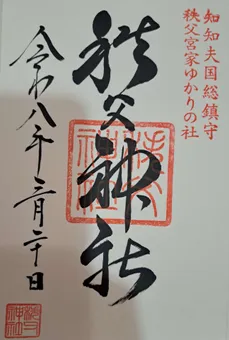 知知夫国総鎮守
秩父宮家ゆかりの社
秩父神社
秩父神社
令和八年三月二十日